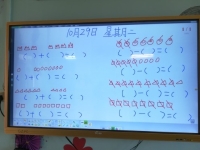 10月29日 星期二
( )+( )=( )
( )-( )=( )
( )+( )=( )
( )-( )=( )
( )+( )=( )
( )-( )=( )
( )+( )=( )
( )-( )=( )